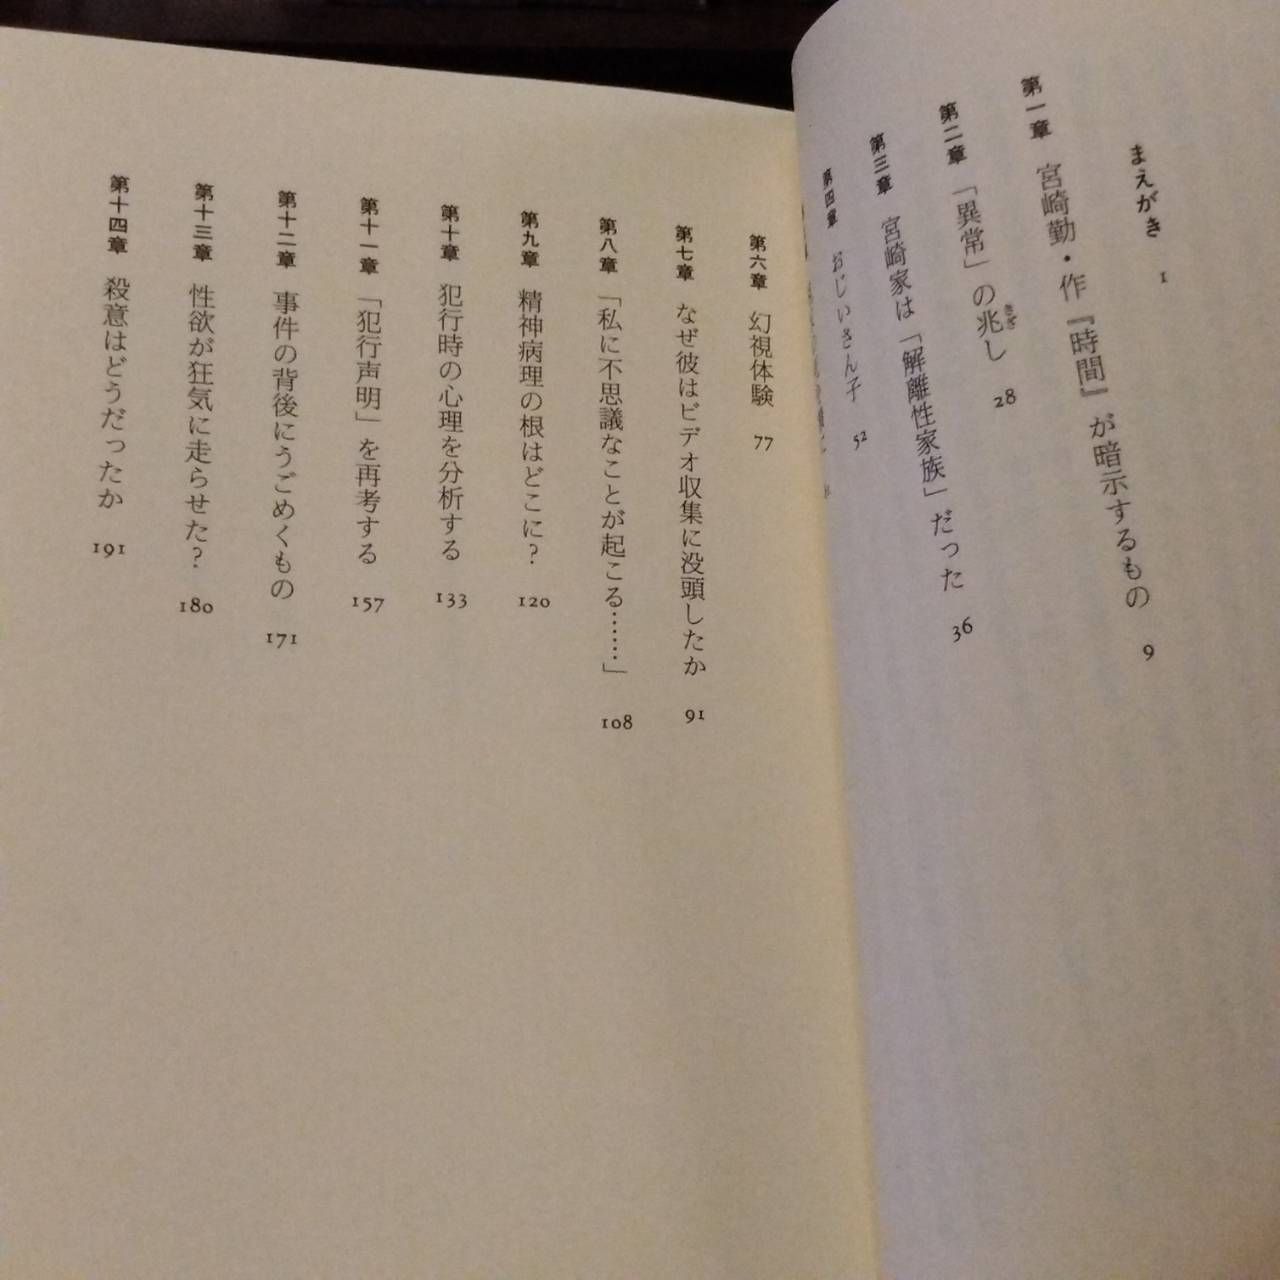 まえがき 1
第一章 宮崎勤・作『時間』が暗示するもの 9
第二章 「異常」の兆し 28
きざ
第三章 宮崎家は「解離性家族」だった 36
第四章 おじいさん子 52
第六章 幻視体験 77
第七章 なぜ彼はビデオ収集に没頭したか 91
第八章 「私に不思議なことが起こる……」 108
第九章 精神病理の根はどこに? 120
第十章 犯行時の心理を分析する 133
第十一章 「犯行声明」を再考する 157
第十二章 事件の背後にうごめくもの 171
第十三章 性欲が狂気に走らせた? 180
第十四章 殺意はどうだったか 191